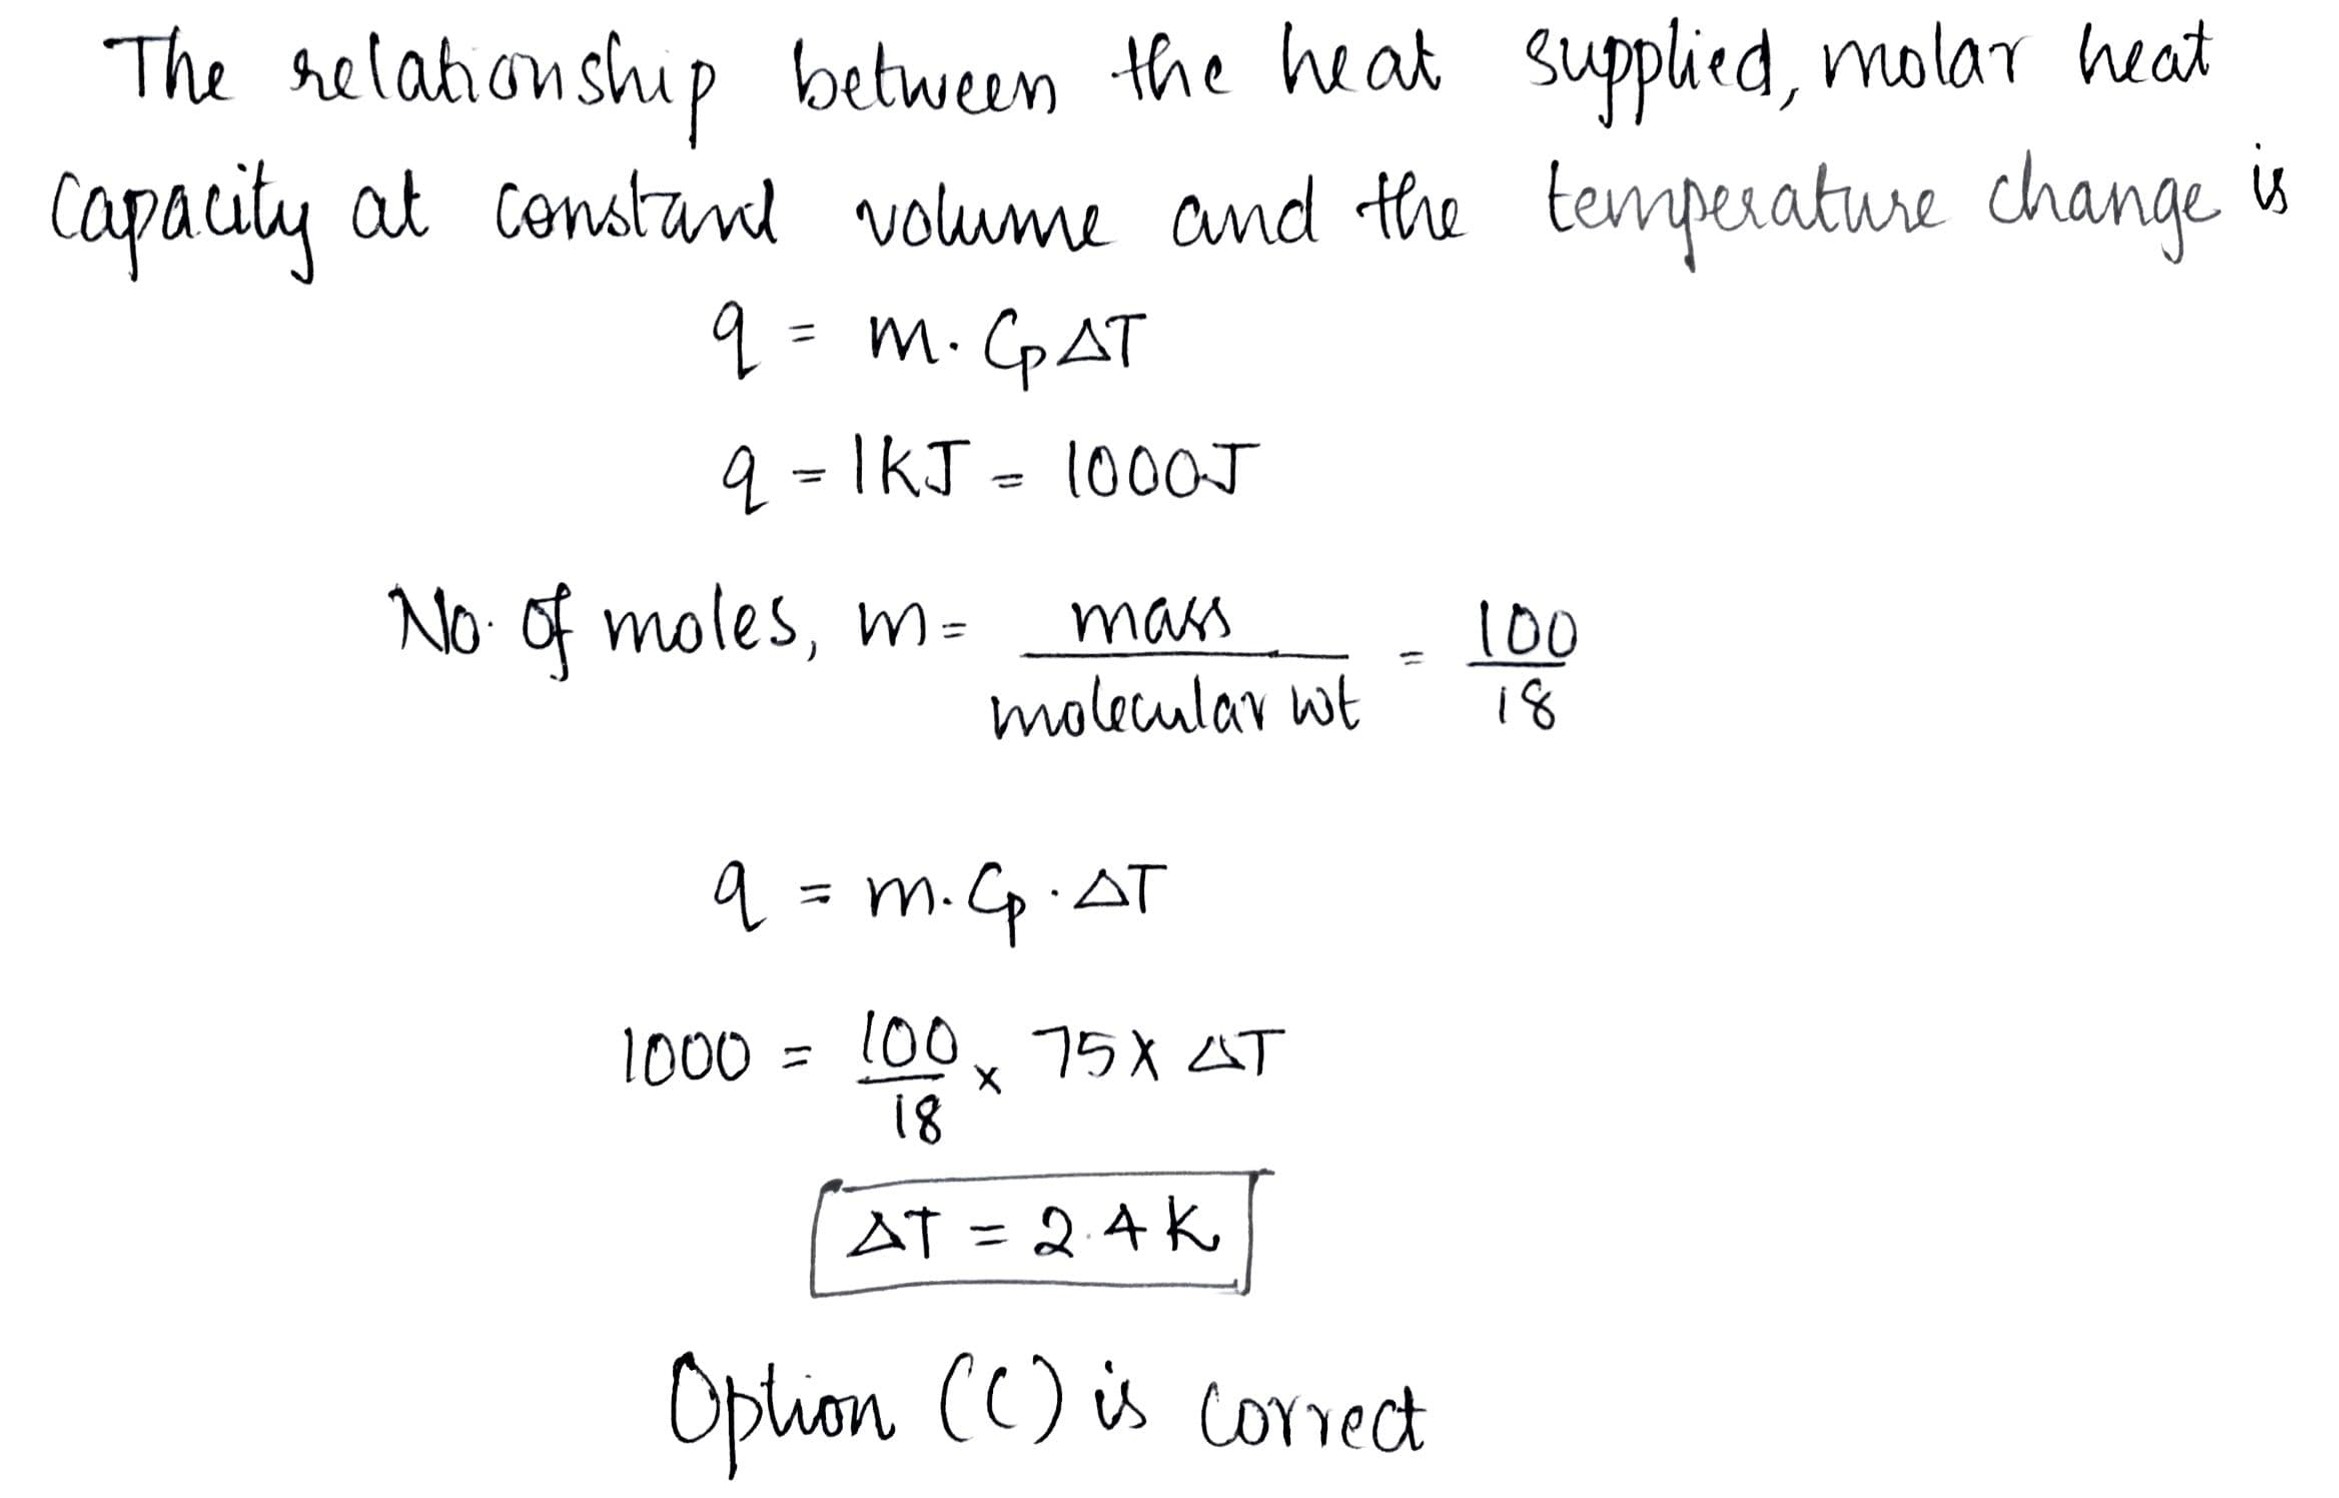 The relationship between the heat supplied, molar heat
capacity at constant volume and the temperature change is
q = m. Cp ΔT
q = 1KJ = 1000J
No. of moles, m = mass / molecular wt = 100 / 18
q = m. Cp . ΔT
1000 = 100 / 18 x 75 x ΔT
ΔT = 2.4 K
Option (C) is correct